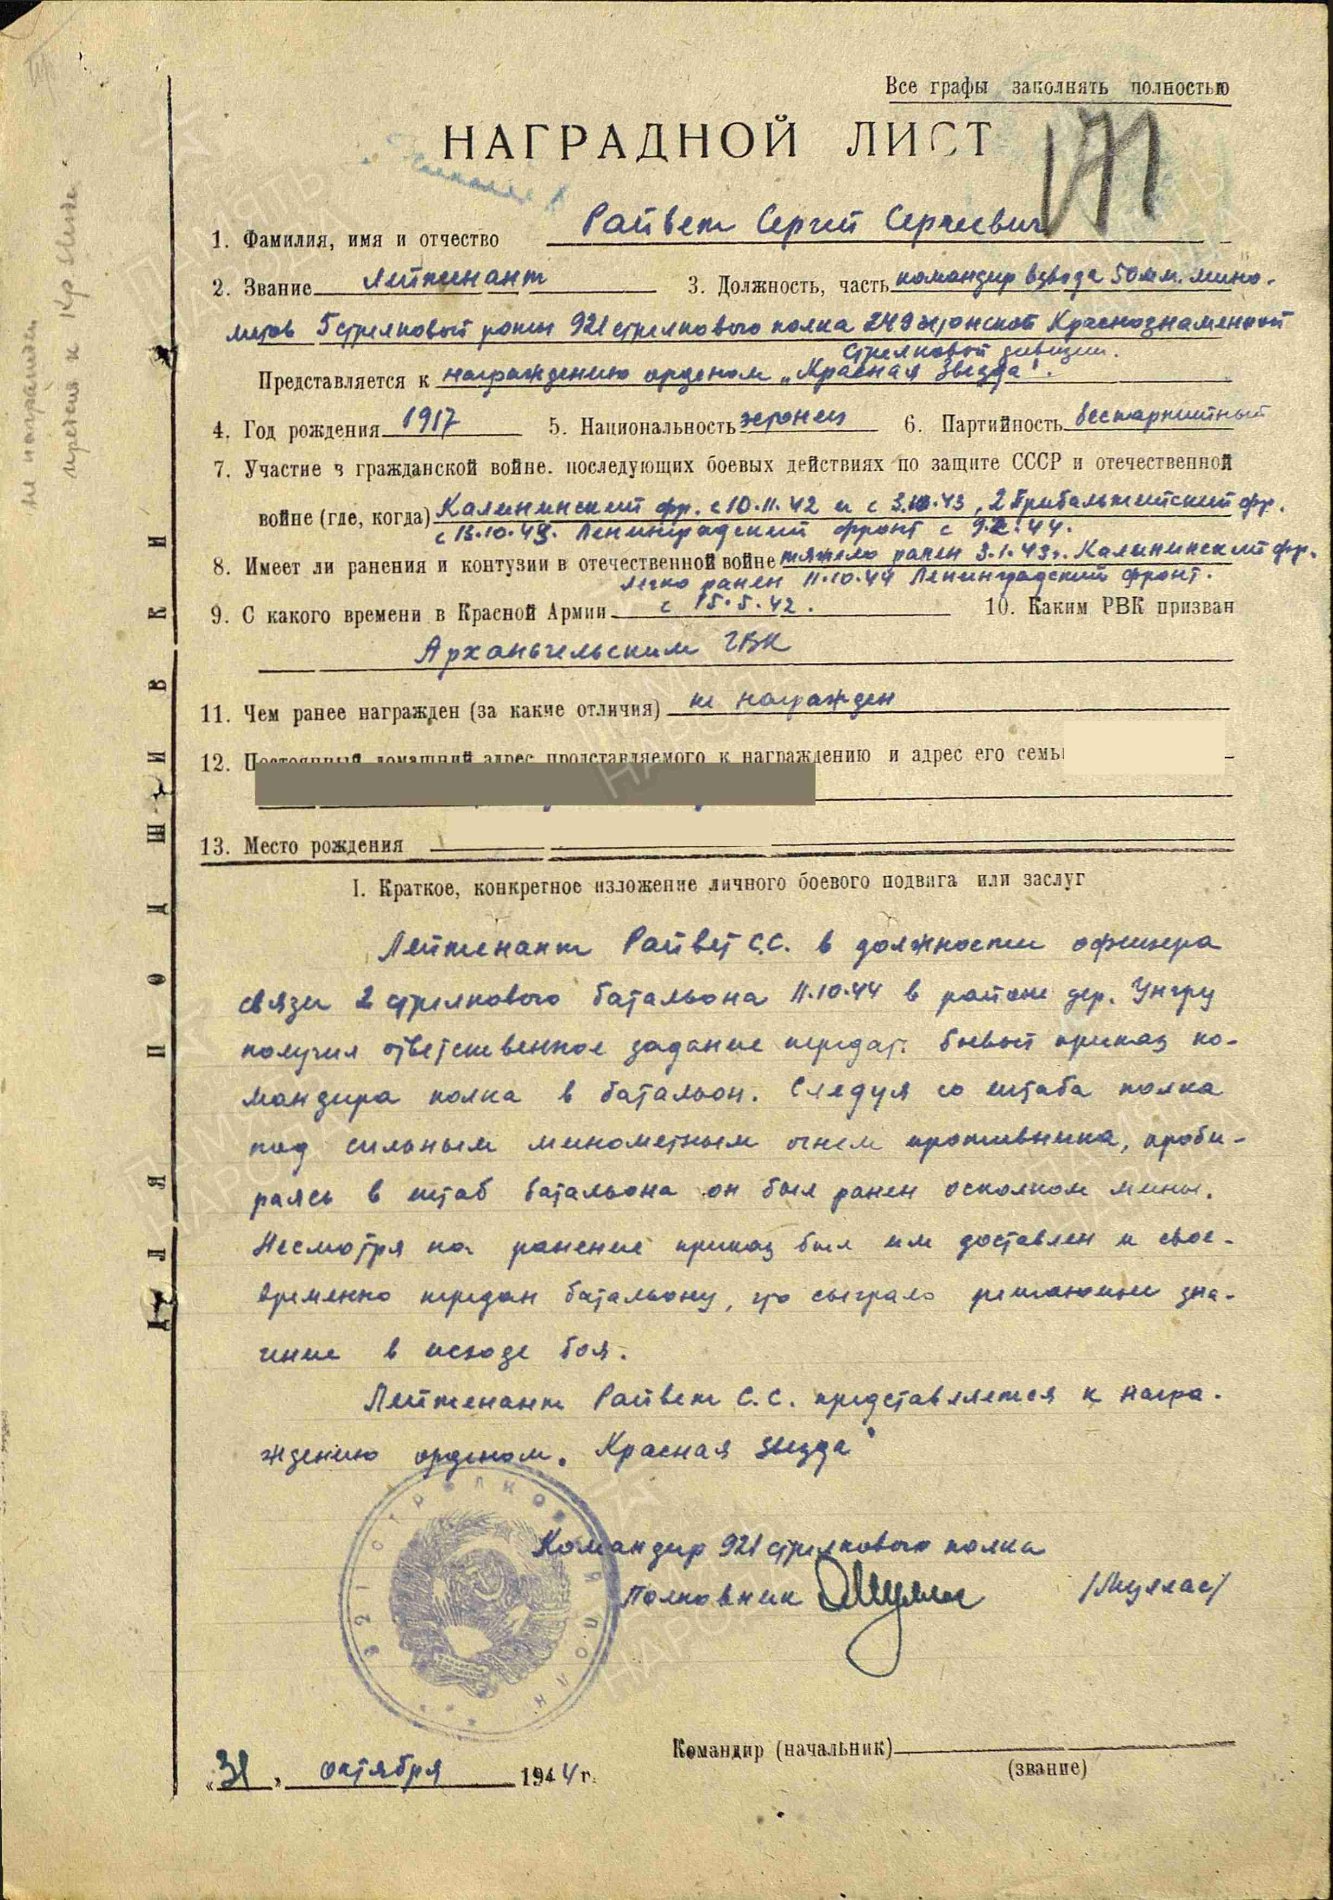 Все графы заполнять полностью
НАГРАДНОЙ ЛИСТ
171
1. Фамилия, имя и отчество Райвет Сергей Сергеевич
2. Звание лейтенант 3. Должность, часть командир взвода 50 м.м. мино-
метов 5 стрелковый роты 921 стрелкового полка 249 эстонской Краснознаменной
стрелковой дивизии.
Представляется к награждению орденом „Красная Звезда".
4. Год рождения 1917 5. Национальность эстонец 6. Партийность беспартийный
7. Участие в гражданской войне. последующих боевых действиях по защите СССР и отечественной
войне (где, когда) Калининский фр. с 10.11.42 и с 3.10.43, 2 Прибалтийский фр.
с 13.10.43. Ленинградский фронт с 9.2.44.
8. Имеет ли ранения и контузии в отечественной войне тяжело ранен 3.1.43г. Калининский фр.
легко ранен 11.10.44 Ленинградский фронт.
9. С какого времени в Красной Армии с 15.5.42. 10. Каким РВК призван
Архангельским ГВК
11. Чем ранее награжден (за какие отличия) не награжден
12. Постоянный домашний адрес представляемого к награждению и адрес его семьи
13. Место рождения
I. Краткое, конкретное изложение личного боевого подвига или заслуг
Лейтенант Райвет С.С. в должности офицера
связи 2 стрелкового батальона 11.10.44 в районе дер. Унгру
получил ответственное задание передат. боевой приказ ко-
мандира полка в батальон. Следуя со штаба полка
под сильным минометным огнем противника, проби-
раясь в штаб батальона он был ранен осколком мины.
Несмотря на ранение приказ был им доставлен и свое-
временно передан батальону, что сыграло решающее зна-
чение в исходе боя.
Лейтенант Райвет С.С. представляется к награ-
ждению орденом „Красная Звезда"
Командир 921 стрелкового полка
Полковник /Муллас/
921 СТРЕЛКОВЫЙ ПОЛК
Командир (начальник)
(звание)
„31" октября 1944 г.
ДЛЯ ПОДШИВКИ
не награжден
ПАМЯТЬ НАРОДА